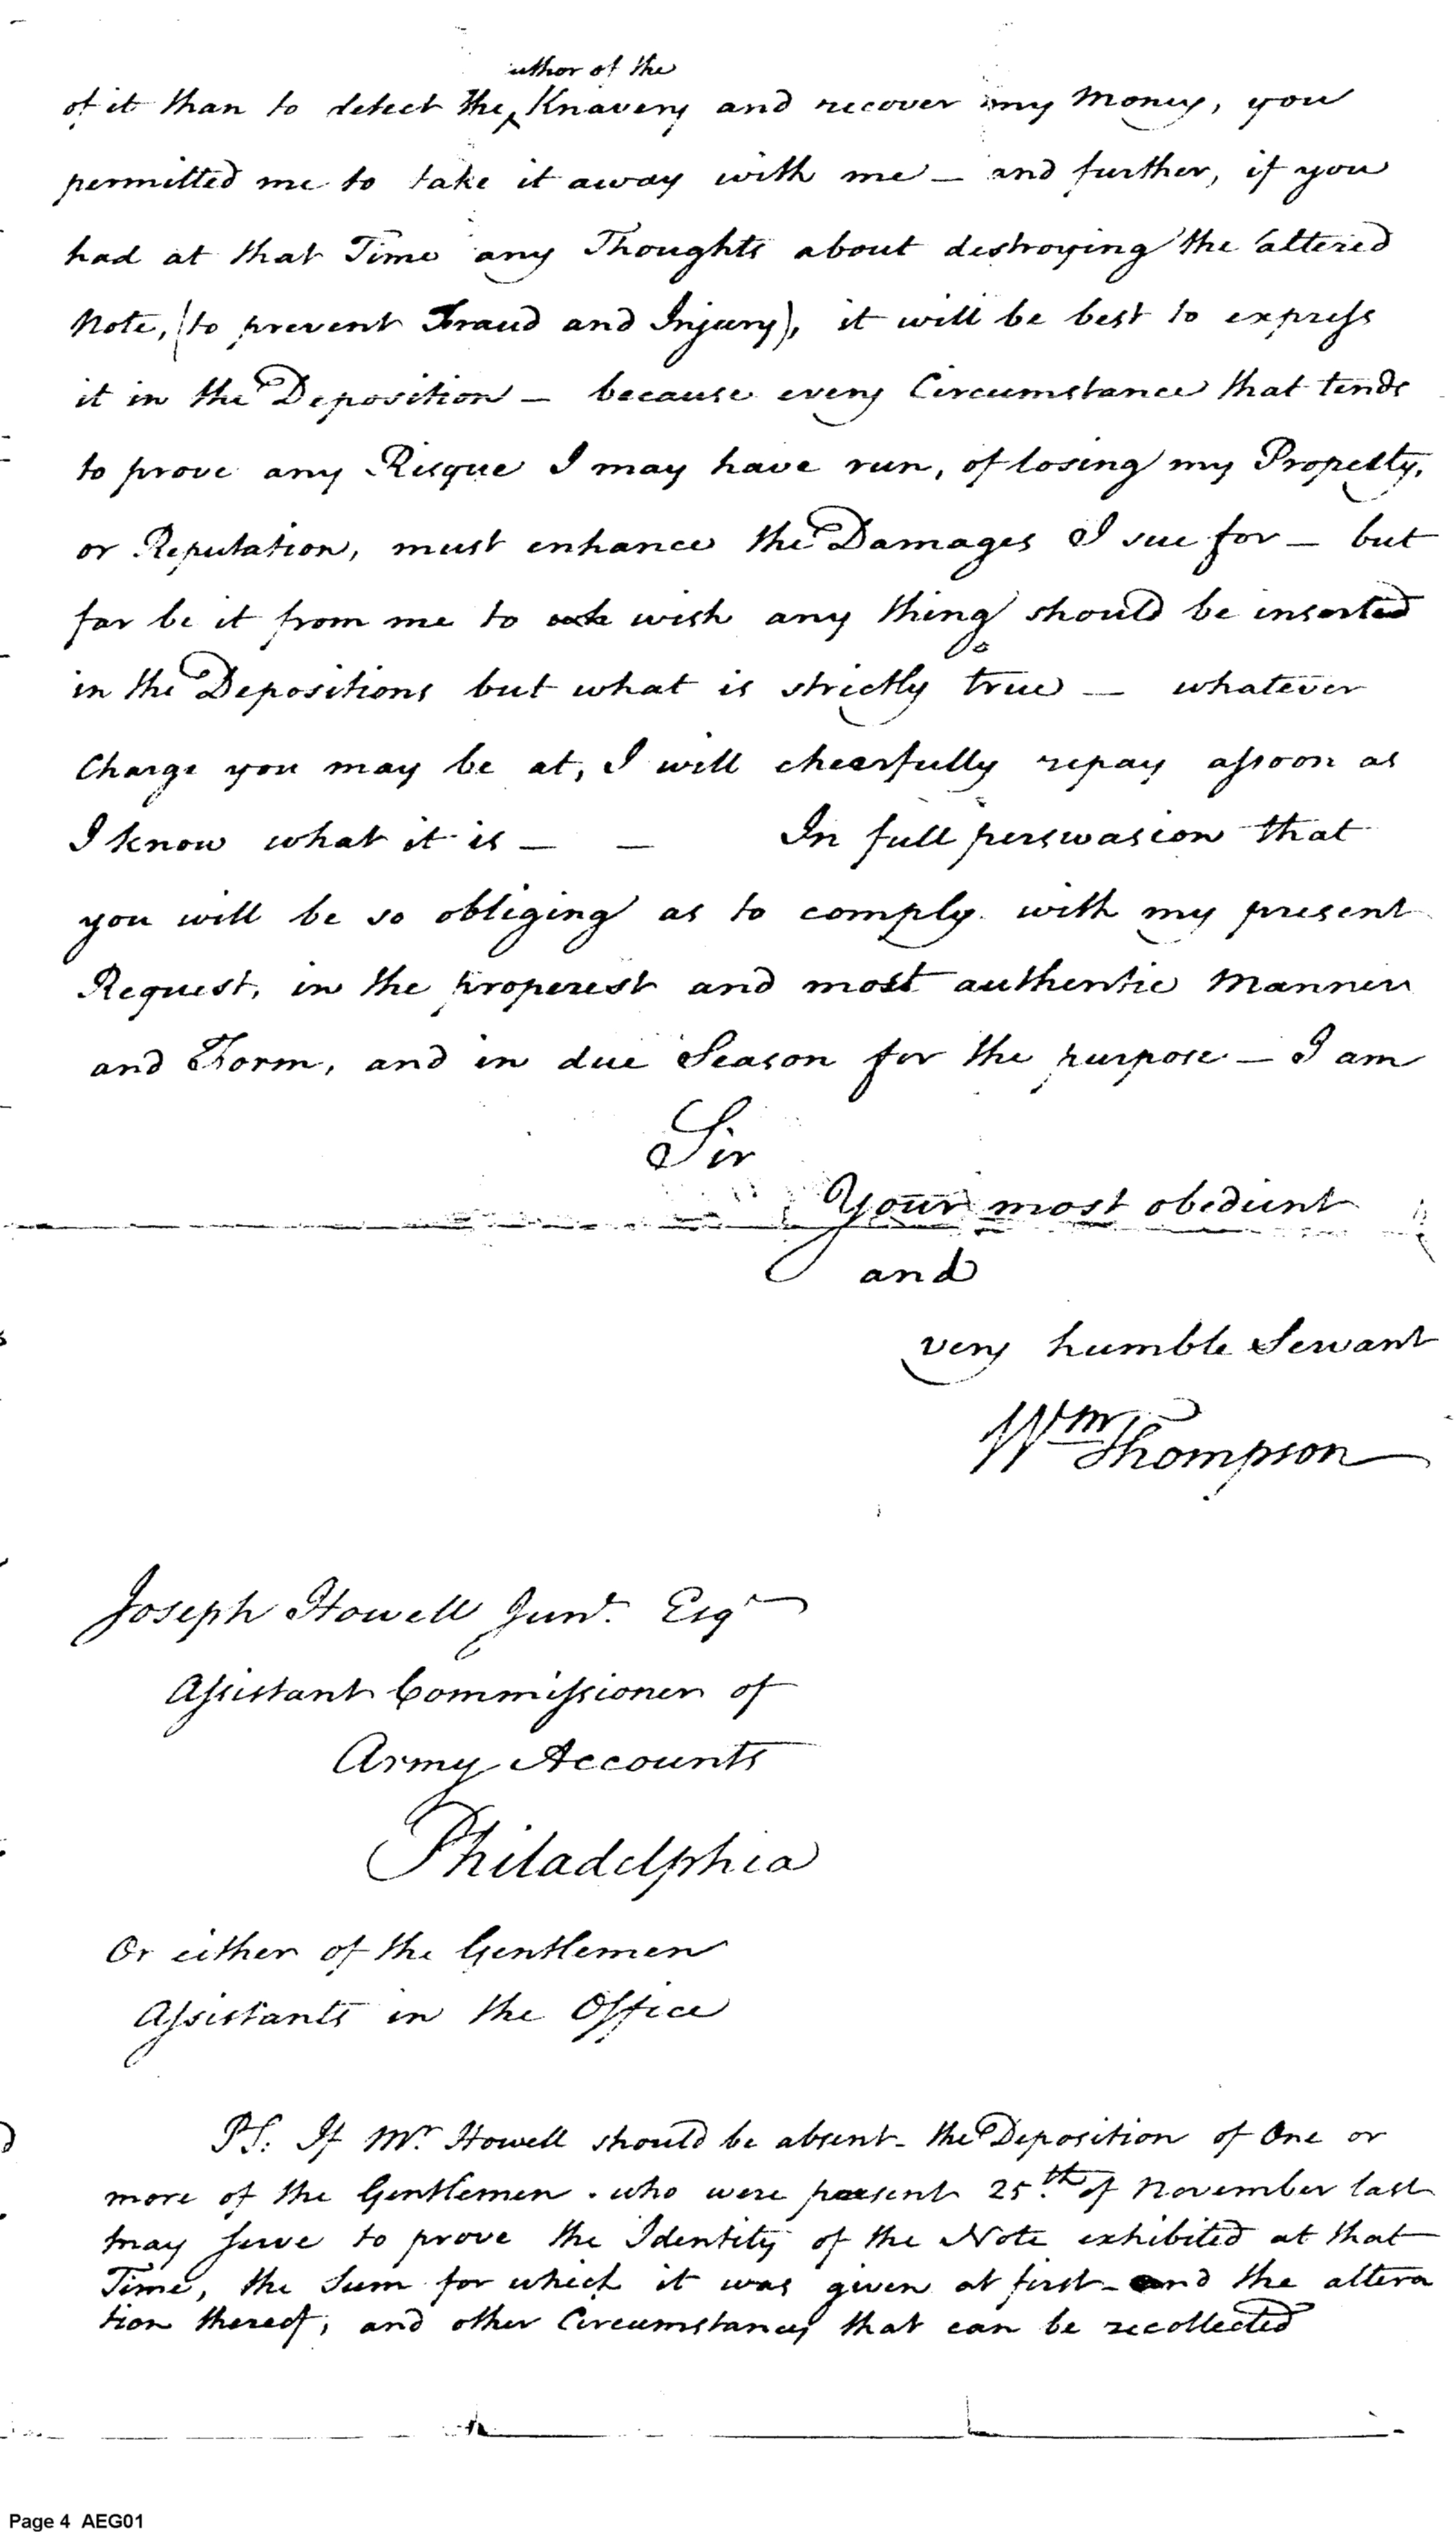 uthor of the
of it than to detect the ‸ Knavery and recover my Money, you
permitted me to take it away with me — and further, if you
had at that Time any Thoughts about destroying the altered
Note, (to prevent Fraud and Injury), it will be best to express
it in the Deposition — because every Circumstance that tends
to prove any Risque I may have run, of losing my Property,
or Reputation, must enhance the Damages I sue for — but
far be it from me to wish any thing should be inserted
in the Depositions but what is strictly true — whatever
Charge you may be at, I will cheerfully repay assoon as
I know what it is — — In full perswasion that
you will be so obliging as to comply with my present
Request, in the properest and most authentic Manner
and Form, and in due Season for the purpose — I am
Sir
Your most obedient
and
very humble Servant
Wm Thompson
Joseph Howell Junr. Esqr
Assistant Commissioner of
Army Accounts
Philadelphia
Or either of the Gentlemen
Assistants in the Office
PS: If Mr. Howell should be absent - the Deposition of One or
more of the Gentlemen . who were present 25.th of November last
may serve to prove the Identity of the Note exhibited at that
Time, the Sum for which it was given at first - and the altera
tion thereof, and other Circumstances that can be recollected
Page 4 AEG01